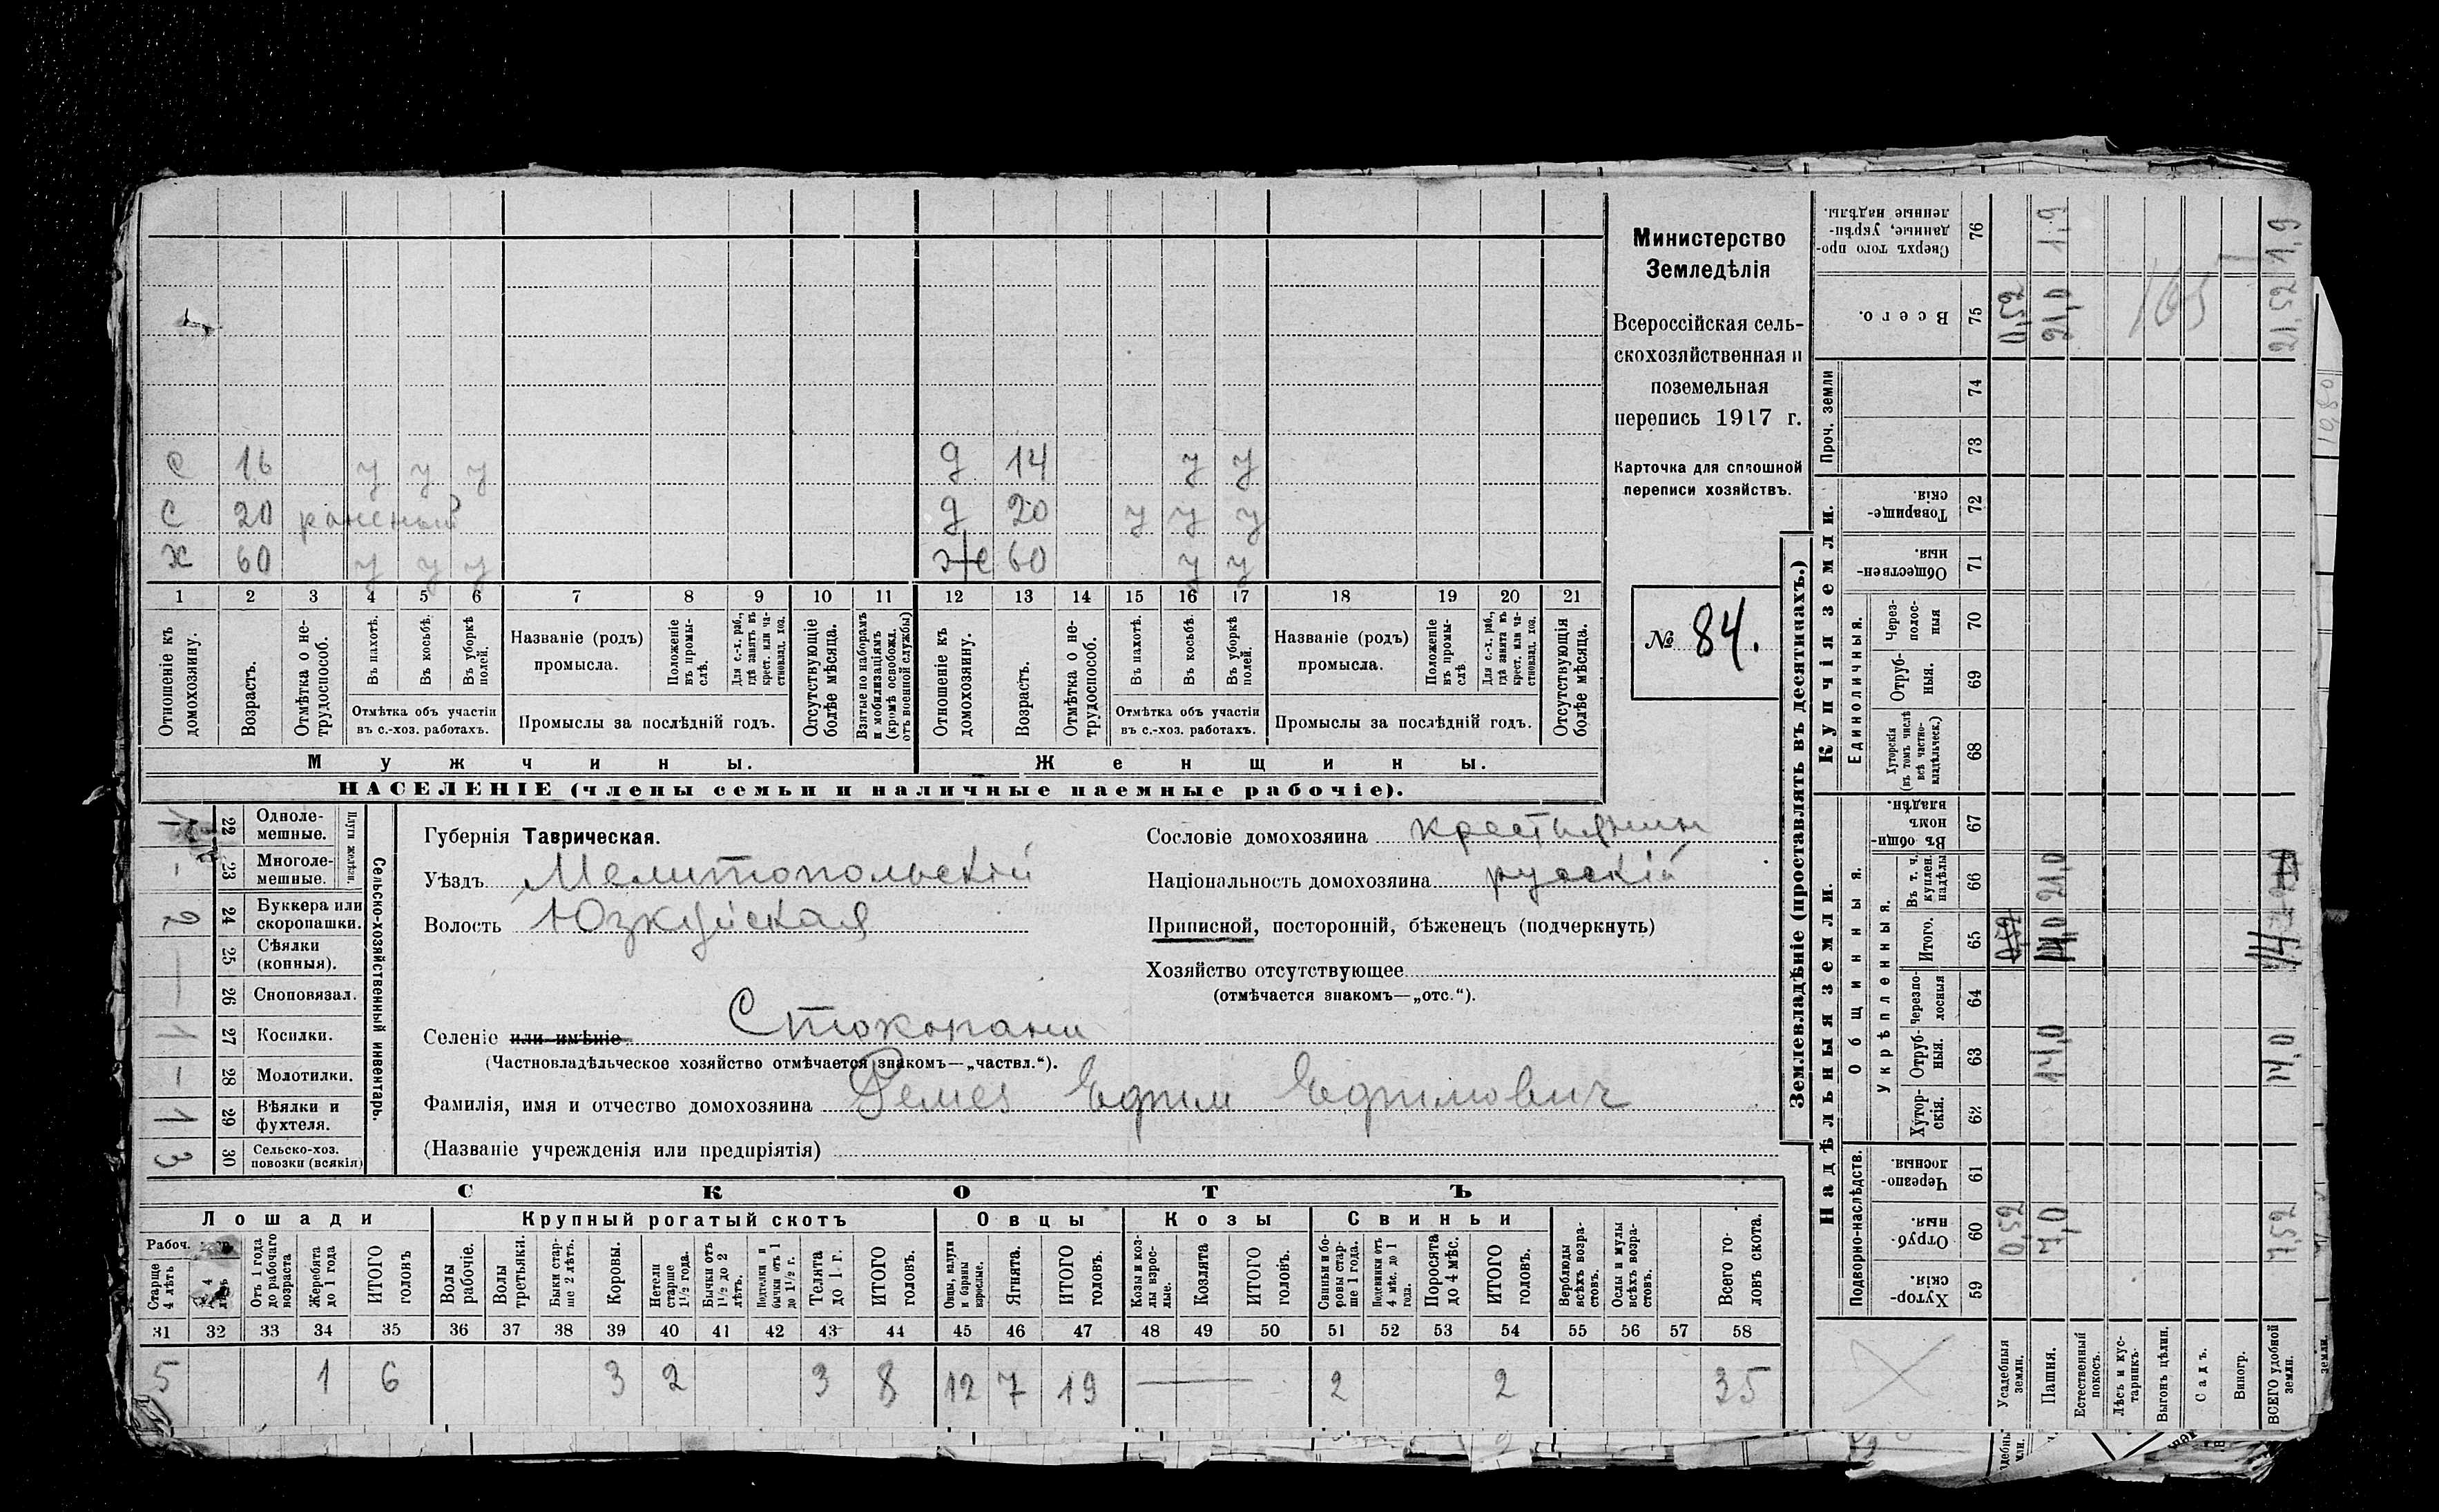 с 16 у у у д 14 у у
с 20 раненый д 20 у у у
х 60 у у у же 60 у у
1 2 3 4 5 6 7 8 9 10 11 12 13 14 15 16 17 18 19 20 21
Отношеніе къ домохозяину.
Возрастъ.
Отмѣтка о нетрудоспособ.
Въ пахотѣ.
Въ косьбѣ.
Въ уборкѣ полей.
Отмѣтка объ участіи
въ с.-хоз. работахъ.
Названіе (родъ)
промысла.
Положеніе въ промыслѣ.
Для с.-х. раб., гдѣ занятъ въ крест. или частновлад. хоз.
Промыслы за послѣдній годъ.
Отсутствующіе болѣе мѣсяца.
Взятые по наборамъ и мобилизаціямъ (кромѣ освобожд. отъ военной службы)
Отношеніе къ домохозяину.
Возрастъ.
Отмѣтка о нетрудоспособ.
Въ пахотѣ.
Въ косьбѣ.
Въ уборкѣ полей.
Отмѣтка объ участіи
въ с.-хоз. работахъ.
Названіе (родъ)
промысла.
Положеніе въ промыслѣ
Для с.-х. раб., гдѣ занята въ крест. или частновлад. хоз.
Промыслы за послѣдній годъ.
Отсутствующія болѣе мѣсяца.
Мужчины. Женщины.
НАСЕЛЕНІЕ (члены семьи и наличные наемные рабочіе).
Министерство
Земледѣлія
Всероссійская сель-
скохозяйственная и
поземельная
перепись 1917 г.
Карточка для сплошной
переписи хозяйствъ.
№ 84.
Сельско-хозяйственный инвентарь.
Плуги желѣзн.
1 22 Однолемешные.
– 23 Многолемешные.
2 24 Буккера или скоропашки.
— 25 Сѣялки (конныя).
26 Сноповязал.
1 27 Косилки.
– 28 Молотилки.
1 29 Вѣялки и фухтеля.
3 30 Сельско-хоз. повозки (всякія)
Губернія Таврическая.
Уѣздъ Мелитопольскій
Волость Юзкуйская
Сословіе домохозяина крестьянин
Національность домохозяина русскій
Приписной, посторонній, бѣженецъ (подчеркнуть)
Хозяйство отсутствующее
(отмѣчается знакомъ—„отс.“).
Селеніе или имѣніе Стокопани
(Частновладѣльческое хозяйство отмѣчается знакомъ—„частвл.“).
Фамилія, имя и отчество домохозяина Ремез Ефим Ефимович
(Названіе учрежденія или предпріятія)
СКОТЪ
Лошади Крупный рогатый скотъ Овцы Козы Свиньи
Рабоч.
Старше 4 лѣтъ
Отъ 1 года до рабочаго возраста
Жеребята до 1 года
ИТОГО головъ
Волы рабочіе.
Волы третьяки.
Быки старше 2 лѣтъ.
Коровы.
Нетели старше 1½ года.
Бычки отъ 1½ до 2 лѣтъ.
Подтелки и бычки отъ 1 до 1½ г.
Телята до 1 г.
ИТОГО головъ.
Овцы, валухи и бараны взрослые.
Ягнята.
ИТОГО головъ.
Козы и козлы взрослые.
Козлята
ИТОГО головъ.
Свиньи и боровы старше 1 года.
Подсвинки отъ 4 мѣс. до 1 года.
Поросята до 4 мѣс.
ИТОГО головъ.
Верблюды всѣхъ возрастовъ.
Ослы и мулы всѣхъ возрастовъ.
Всего головъ скота.
31 32 33 34 35 36 37 38 39 40 41 42 43 44 45 46 47 48 49 50 51 52 53 54 55 56 57 58
5 1 6 3 2 3 8 12 7 19 — 2 2 35
Землевладѣніе (проставлять въ десятинахъ.)
Сверхъ того проданные, укрѣпленные надѣлы. 76 1,9 1,9
Всего. 75 0,52 21,0 165 21,52
Проч. земли
74
73
Купчія земли.
Товарищескія. 72
Общественныя. 71
Единоличныя.
Черезполосныя 70
Отрубныя. 69
Хуторскія (въ томъ числѣ всѣ частновладѣльческ.) 68
Надѣльныя земли.
Общинныя.
Въ общинномъ владѣн. 67
Укрѣпленныя.
Въ т. ч. куплен. надѣлы 66 21,0
Итого. 65 0,52 14,0 14
Черезполосныя 64
Отрубныя. 63 14,0 14,0
Хуторскія. 62
Подворно-наслѣдств.
Черезполосныя 61
Отрубныя. 60 0,52 7,0 7,52
Хуторскія 59
Усадебныя земли.
Пашня.
Естественный покосъ.
Лѣсъ и кустарникъ
Выгонъ цѣлин.
Садъ.
Виногр.
ВСЕГО удобной земли.
земли.
1080